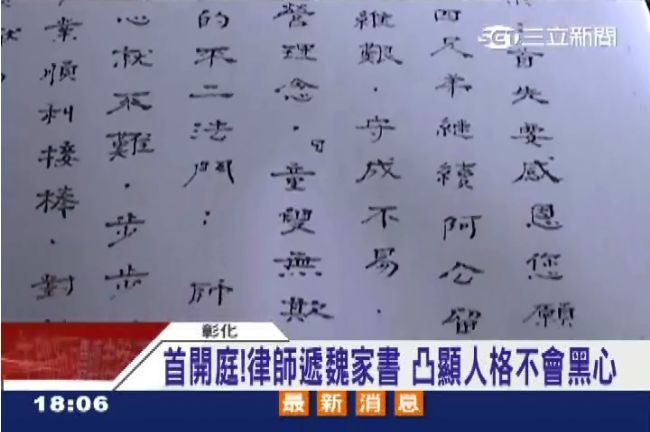 SET三立新聞
首先要感恩您願
四兄弟繼續阿公留
維艱．守成不易．
營理念．童叟無欺
的不二法門：
心淑不難．步步
業順利接棒．對
彰化
首開庭!律師遞魏家書 凸顯人格不會黑心
18:06
最新消息